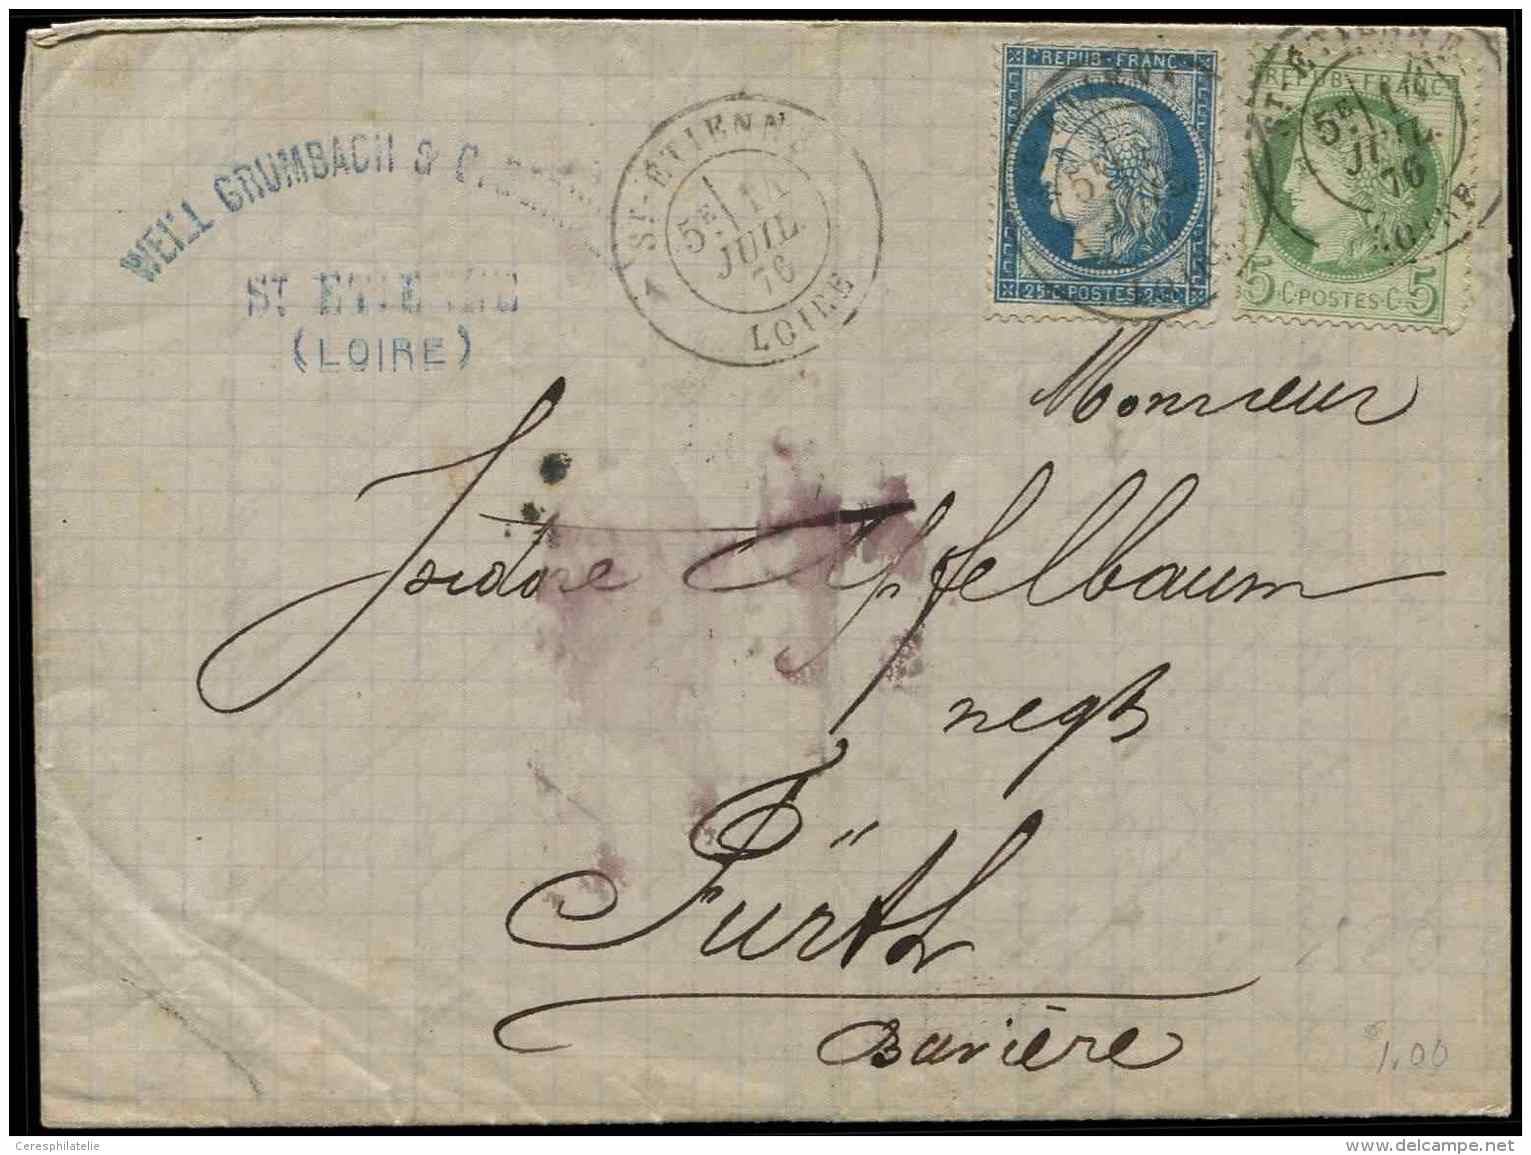 WEILL GRUMBACH & C
ST ETIENNE
(LOIRE)
ST-ETIENNE
5E 14
JUIL.
76
LOIRE
REPUB·FRANC
25·C·POSTES·25·C
5E
ST-ETIENNE
REPUB·FRANC
5E 14
JUIL.
76
LOIRE
5·C·POSTES·C·5
Monsieur
Isidore Apfelbaum
negt
Fürth
Bavière
$1.00
Ceresphilatelie
www.delcampe.net